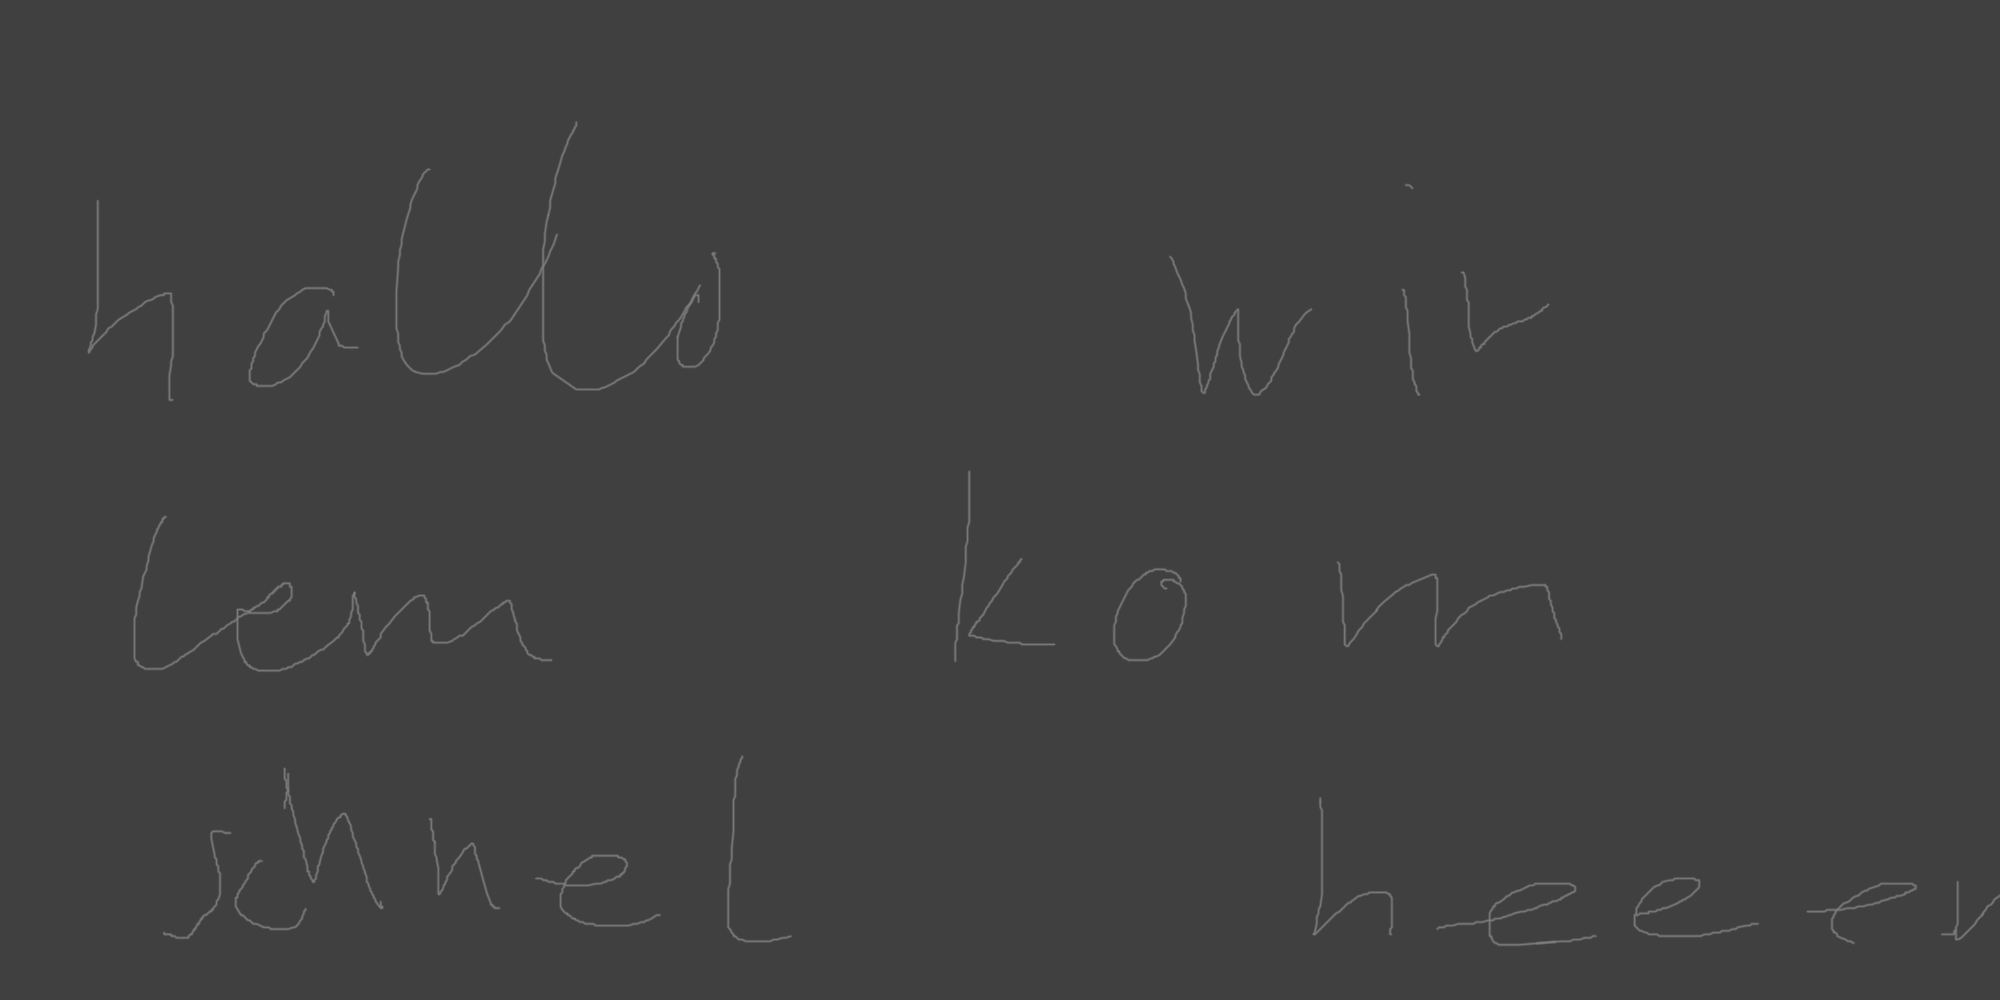 hallo wir
lem kom
schnel heeer